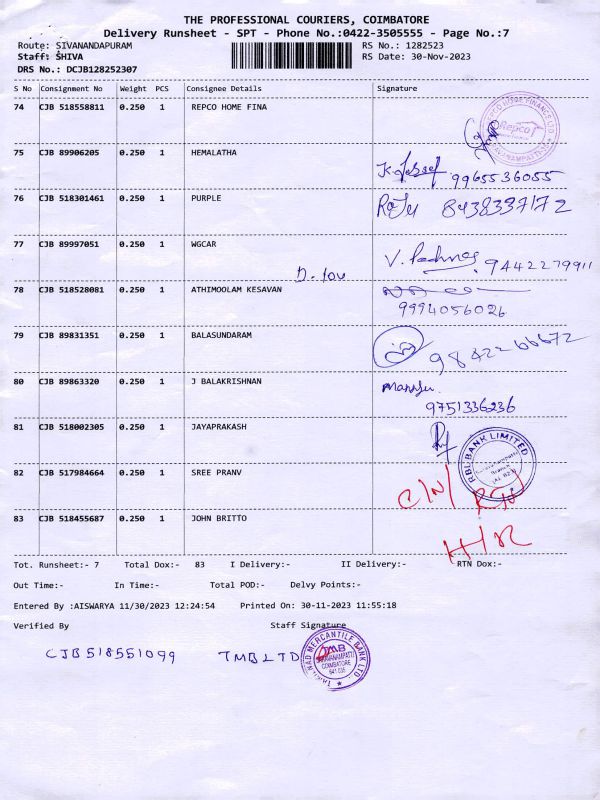 THE PROFESSIONAL COURIERS, COIMBATORE
Delivery Runsheet - SPT - Phone No.:0422-3505555 - Page No.:7
Route: SIVANANDAPURAM RS No.: 1282523
Staff: SHIVA RS Date: 30-Nov-2023
DRS No.: DCJB128252307
S No Consignment No Weight PCS Consignee Details Signature
74 CJB 518558811 0.250 1 REPCO HOME FINA
Repco
75 CJB 89906205 0.250 1 HEMALATHA
9965536055
76 CJB 518301461 0.250 1 PURPLE Raju 8438337172
77 CJB 89997051 0.250 1 WGCAR
9442279911
78 CJB 518528081 0.250 1 ATHIMOOLAM KESAVAN
9994056026
79 CJB 89831351 0.250 1 BALASUNDARAM
9842266672
80 CJB 89863320 0.250 1 J BALAKRISHNAN
9751336236
81 CJB 518002305 0.250 1 JAYAPRAKASH
RBL BANK LIMITED
82 CJB 517984664 0.250 1 SREE PRANV
83 CJB 518455687 0.250 1 JOHN BRITTO
Tot. Runsheet:- 7 Total Dox:- 83 I Delivery:- II Delivery:- RTN Dox:-
Out Time:- In Time:- Total POD:- Delvy Points:-
Entered By :AISWARYA 11/30/2023 12:24:54 Printed On: 30-11-2023 11:55:18
Verified By Staff Signature
CJB518551099 TMB LTD
TAMILNAD MERCANTILE BANK LTD
TMB
COIMBATORE